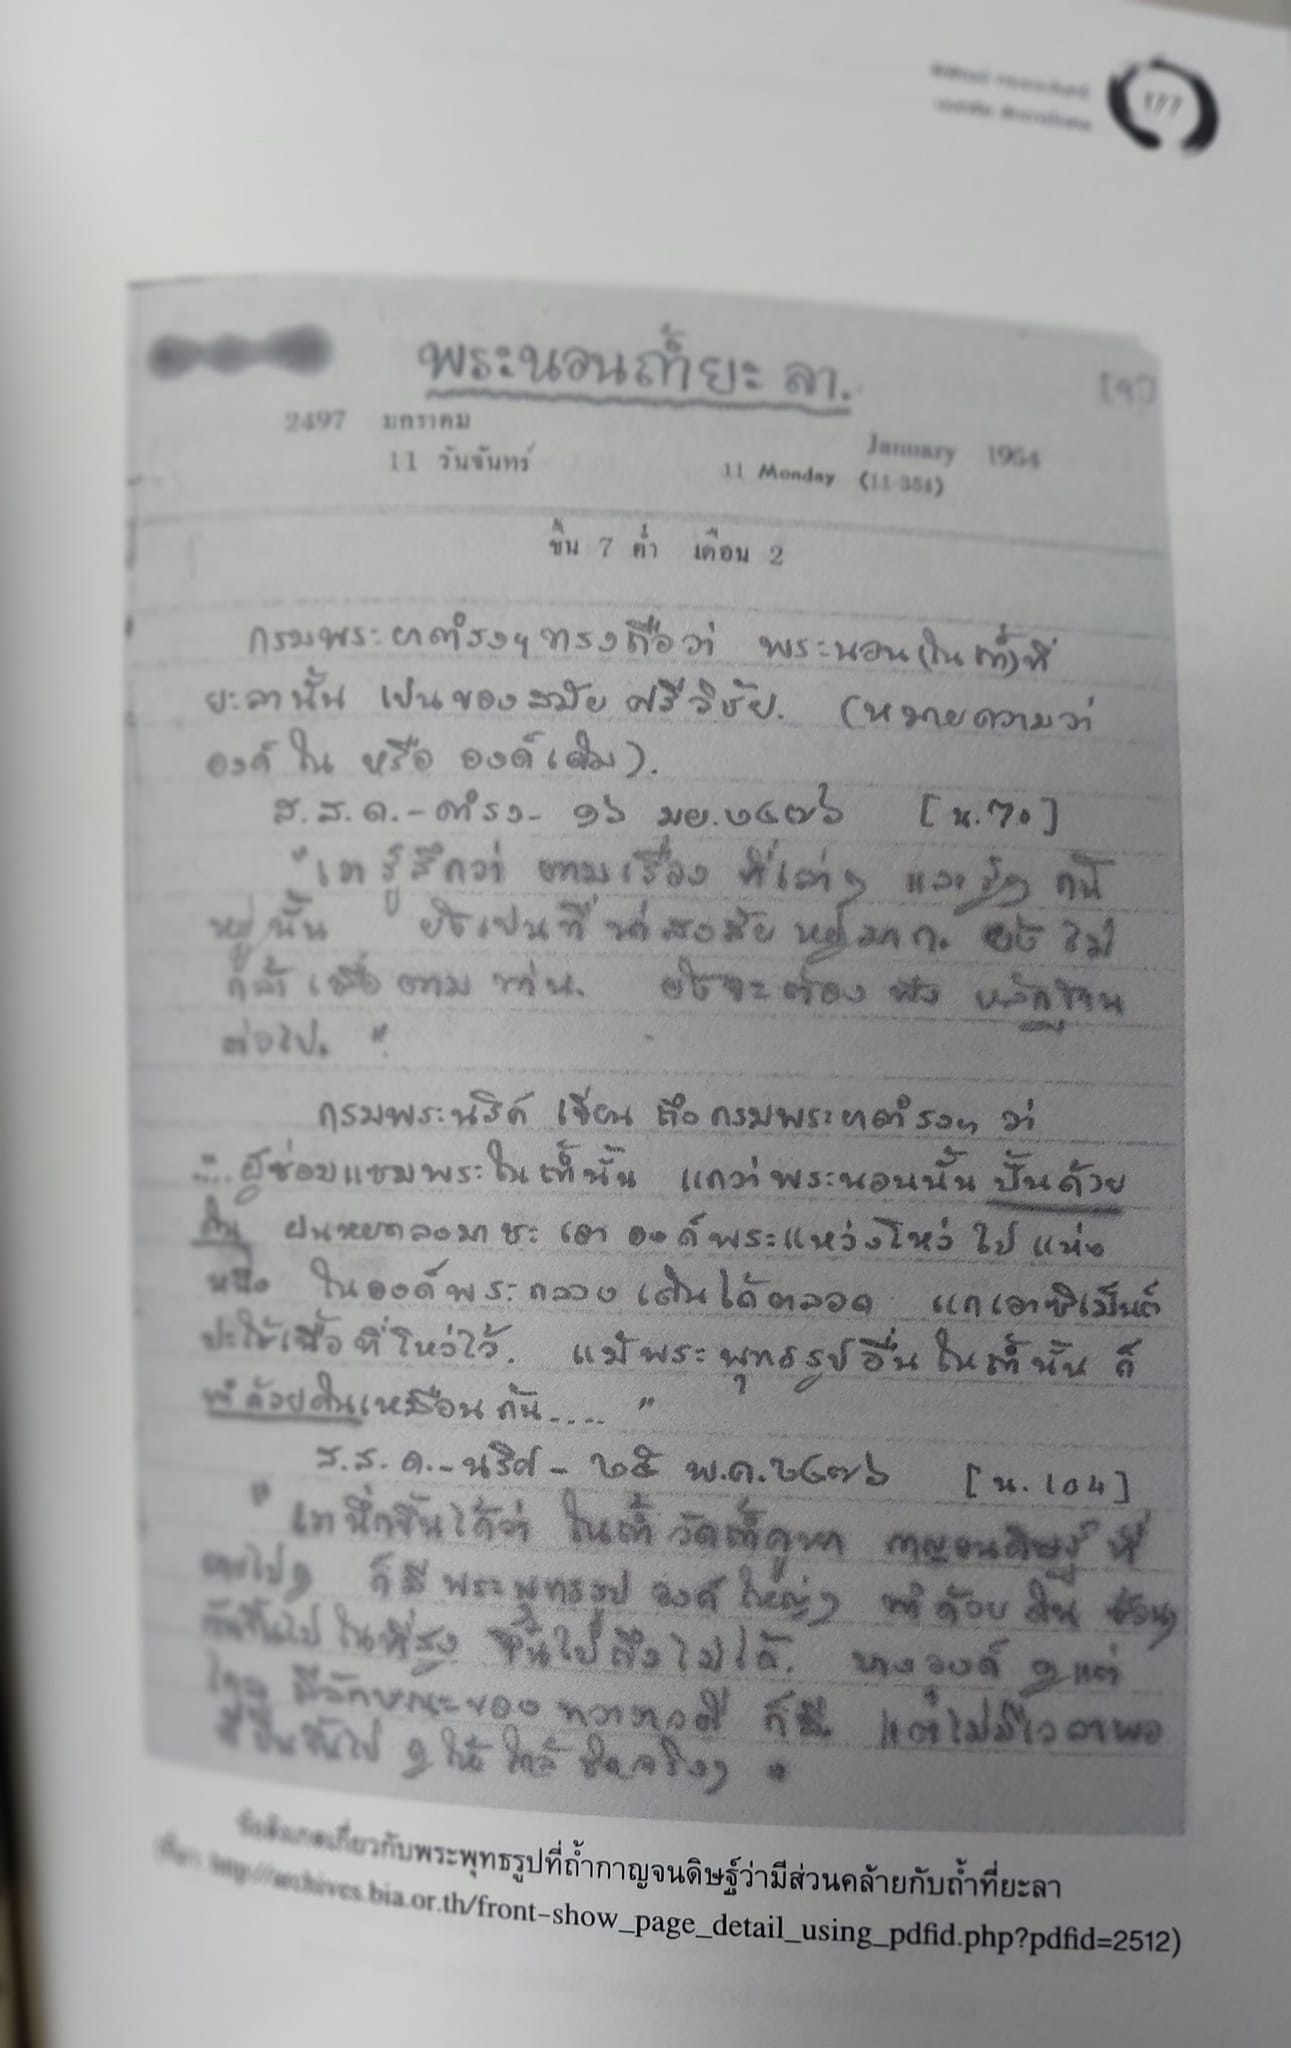 177
พระนอนถ้ำยะลา.
2497 มกราคม
January 1954
11 วันจันทร์
11 Monday (11-354)
ขึ้น 7 ค่ำ เดือน 2
กรมพระยาดำรงฯ ทรงถือว่า พระนอน(ในถ้ำ)ที่
ยะลานั้น เป็นของสมัย ศรีวิชัย. (หมายความว่า
องค์ใน หรือ องค์เดิม).
ส.ส.ด.-ดำรง- ๑๖ มย.๒๔๗๖ [น.70]
"เรารู้สึกว่า ตามเรื่อง ที่เล่าๆ และรู้ๆ กันอยู่นั้น
ยังเป็นที่น่าสงสัย
เชื่อตามท่าน. ยังจะต้องฟัง หลักฐาน
ต่อไป. "
กรมพระนริศ เขียน ถึงกรมพระยาดำรงฯ ว่า
"...ผู้ซ่อมแซมพระในถ้ำนั้น แกว่าพระนอนนั้น ปั้นด้วย
ดิน ฝนหยดลงมาชะ เอาองค์พระแหว่งโหว่ไป แห่ง
หนึ่ง ในองค์พระกลวง เดินได้ตลอด แกเอาซิเม็นต์
ปะไว้เนื้อที่โหว่ไว้. แม้พระพุทธรูปอื่นในถ้ำนั้น ก็
ทำด้วยดินเหมือนกัน...."
ส.ส.ด.-นริศ- ๒๕ พ.ค.๒๔๗๖ [น.104]
"เรานึกขึ้นได้ว่า ในถ้ำ วัดถ้ำคูหา กาญจนดิษฐ์ ที่
เราไปดู ก็มีพระพุทธรูป องค์ใหญ่ๆ ทำด้วยดิน
กันขึ้นไป ในที่สูง ขึ้นไปถึงไม่ได้. บางองค์ ดูแต่
ไกล มีลักษณะของ ทวาราวดี ก็มี แต่ไม่มีเวลาพอ
ที่ปีนขึ้นไป ดูให้ใกล้ชิดจริงๆ "
ข้อสังเกตเกี่ยวกับพระพุทธรูปที่ถ้ำกาญจนดิษฐ์ว่ามีส่วนคล้ายกับถ้ำที่ยะลา
(ที่มา http://archives.bia.or.th/front-show_page_detail_using_pdfid.php?pdfid=2512)